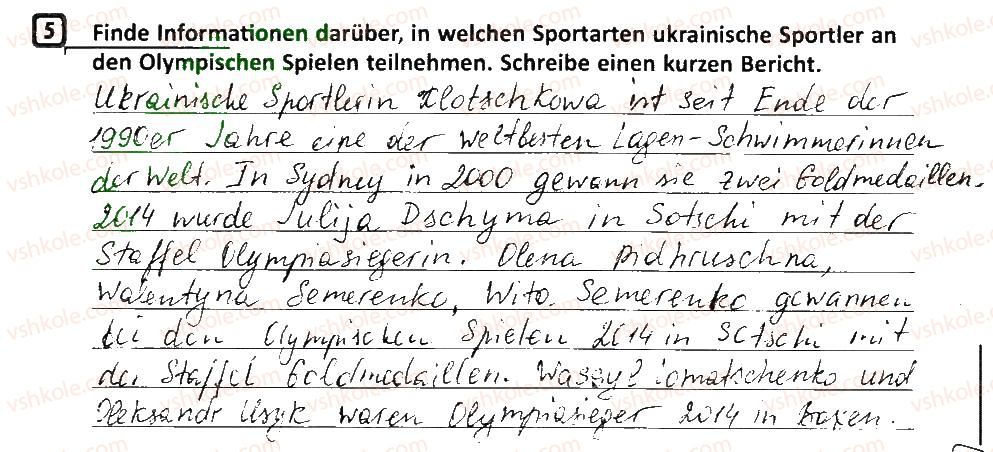 5 Finde Informationen darüber, in welchen Sportarten ukrainische Sportler an
den Olympischen Spielen teilnehmen. Schreibe einen kurzen Bericht.
Ukrainische Sportlerin Klotschkowa ist seit Ende der
1990er Jahre eine der weltbesten Lagen-Schwimmerinnen
der Welt. In Sydney in 2000 gewann sie zwei Goldmedaillen.
2014 wurde Julija Dschyma in Sotschi mit der
Staffel Olympiasiegerin. Olena Pidhruschna,
Walentyna Semerenko, Wita Semerenko gewannen
bei den Olympischen Spielen 2014 in Sotschi mit
der Staffel Goldmedaillen. Wassyl Lomatschenko und
Oleksandr Usyk waren Olympiasieger 2014 in Boxen.